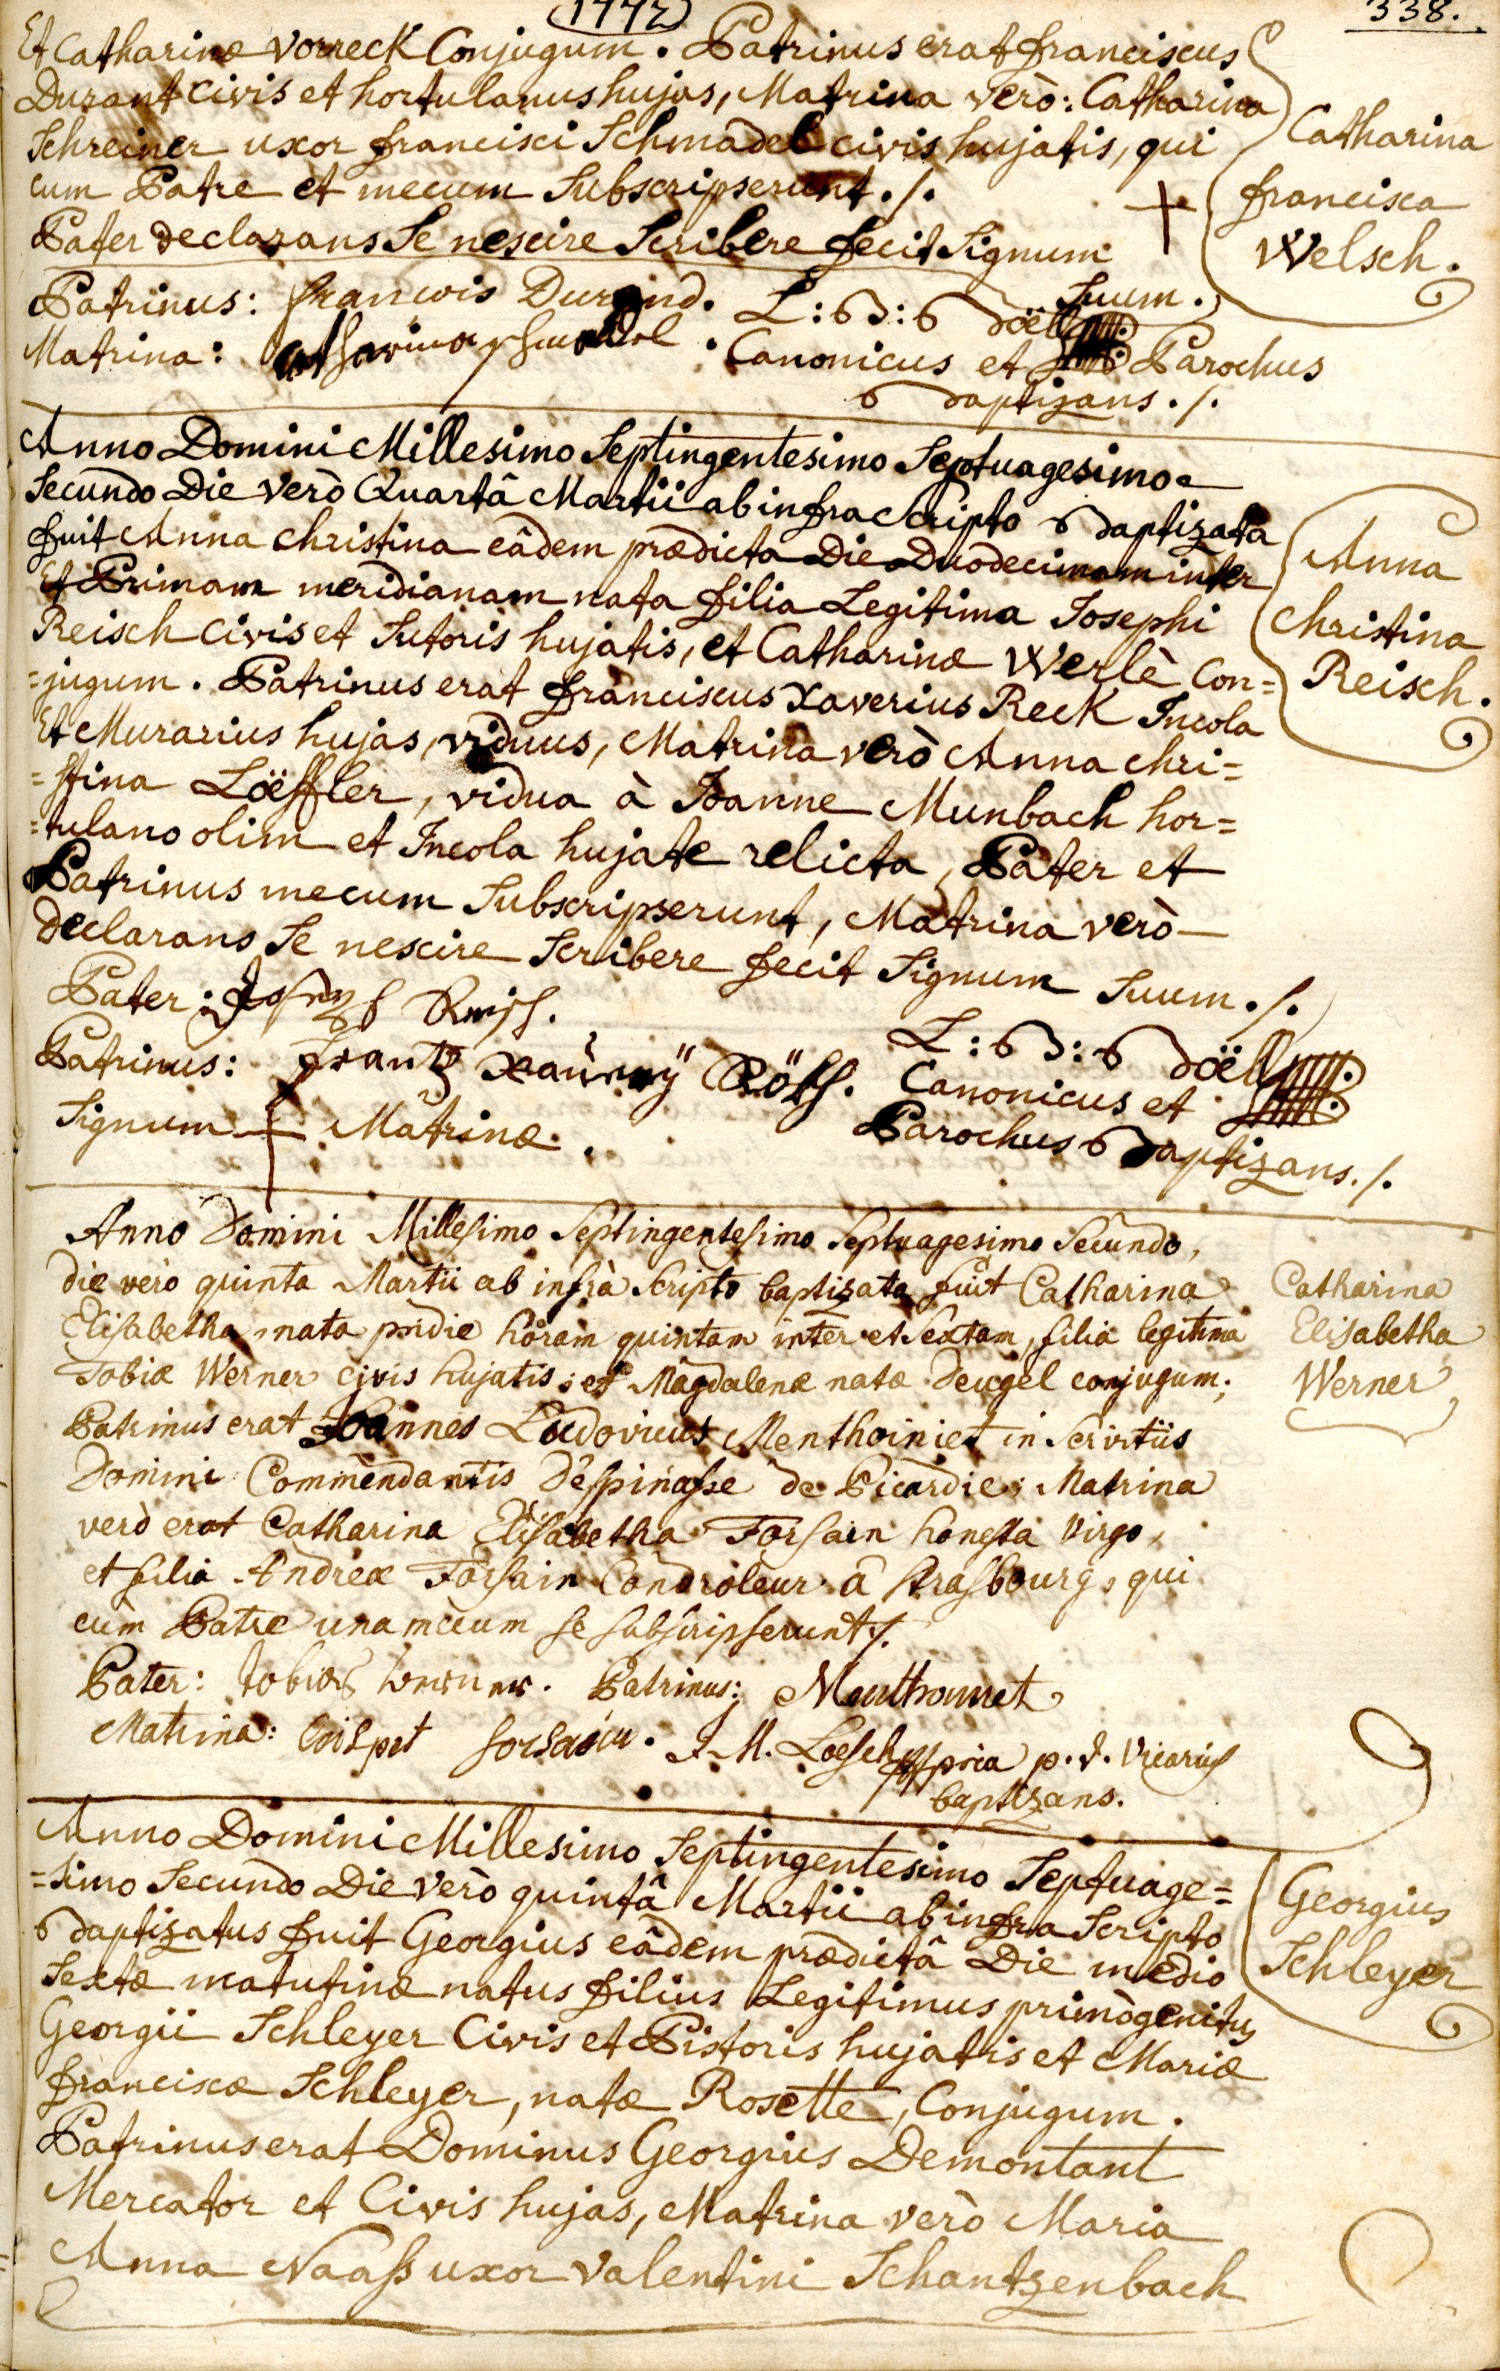 1772
338.
Et Catharinæ Vorreck Conjugum. Patrinus erat franciscus
Durant civis et hortulanus hujas, Matrina verò: Catharina
Schreiner uxor francisci Schmadel civis hujatis, qui
cum Patre et mecum Subscripserunt ./.
Pater declarans Se nescire Scribere fecit Signum
Suum.
Catharina
francisca
Welsch.
Patrinus: françois Durand.
L: B: Boëll
Matrina: schmadel.
Canonicus et Parochus
Baptizans ./.
Anno Domini Millesimo Septingentesimo Septuagesimo
Secundo Die verò Quartâ Martii ab infra Scripto Baptizata
fuit Anna Christina eâdem prædicta Die Duodecimam inter
Et Primam meridianam nata filia Legitima Josephi
Reisch civis et Sutoris hujatis, et Catharinæ Werlè Con=
=jugum. Patrinus erat franciscus Xaverius Reck Incola
Et Murarius hujas, viduus, Matrina verò Anna Chri=
=stina Löeffler, vidua à Joanne Munbach hor=
=tulano olim et Incola hujate relicta, Pater et
Patrinus mecum Subscripserunt, Matrina verò
declarans Se nescire Scribere fecit Signum Suum ./.
Anna
Christina
Reisch.
Pater: Joseph Reisch.
L: B: Boëll
Patrinus: Frantz
Canonicus et
Signum Matrinæ.
Parochus Baptizans ./.
Anno Domini Millesimo Septingentesimo Septuagesimo Secundo,
die verò quinta Martii ab infrà Scripto baptizata fuit Catharina
Elisabetha, nata pridie horam quintam inter et Sextam, filia legitima
Tobiæ Werner civis hujatis, et Magdalenæ natæ Deigel conjugum;
Patrinus erat Joannes Ludovicus Menthoiniet in Servitiis
Domini Commendantis D'espinasse de Picardie; Matrina
verò erat Catharina Elisabetha Forsain honesta Virgo,
et filia Andreæ Forsain Condroleur à Strasbourg, qui
cùm Patre una mecum se subscripserunt ./.
Catharina
Elisabetha
Werner
Pater: tobias werner. Patrinus: Menthonnet
Matrina: forsain. J. M. Loesch ppria p. t. Vicarius
baptizans.
Anno Domini Millesimo Septingentesimo Septuage=
=simo Secundo Die verò quintâ Martii ab infra Scripto
Baptizatus fuit Georgius eâdem prædictâ Die mediò
Sextæ matutinæ natus filius Legitimus primògenitus
Georgii Schleyer Civis et Pistoris hujatis et Mariæ
franciscæ Schleyer, natæ Rosette, Conjugum.
Patrinus erat Dominus Georgius Demontant
Mercator et Civis hujas, Matrina verò Maria
Anna Naass uxor Valentini Schantzenbach
Georgius
Schleyer